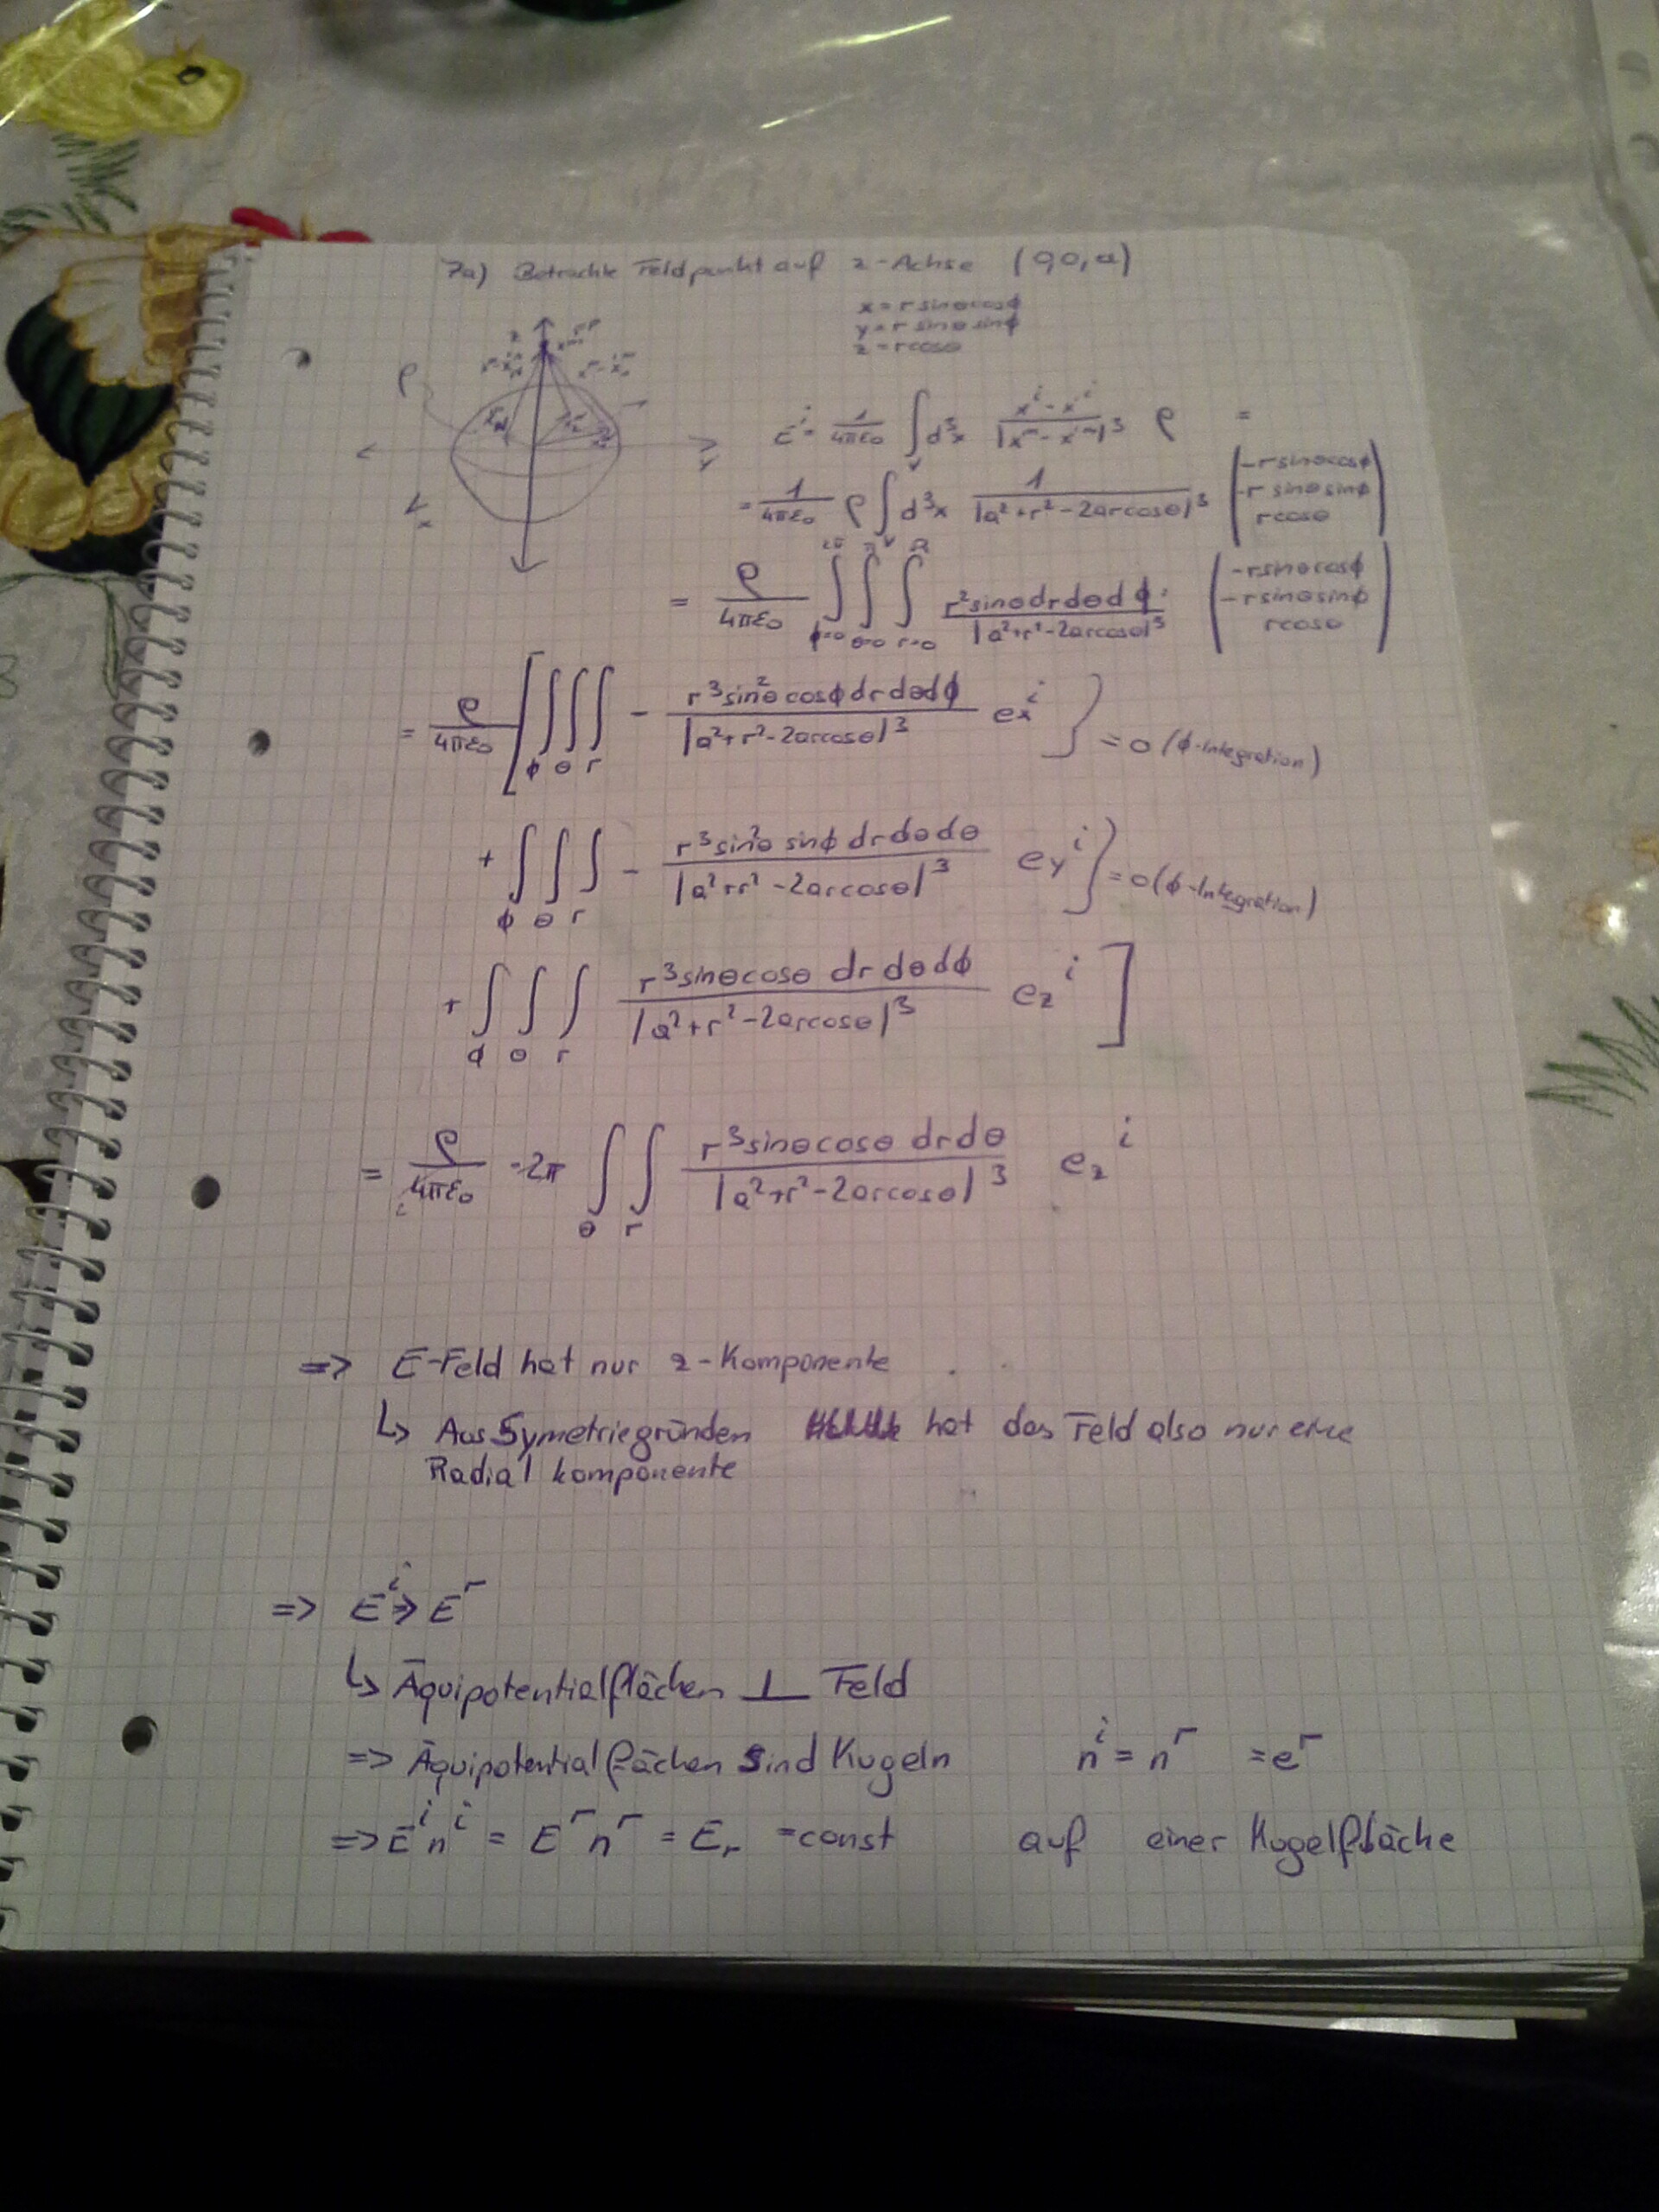 7a) Betrachte Feldpunkt auf z-Achse (0,0,a)
x = r sinθcosϕ
y = r sinθ sinϕ
z = rcosθ
z
ρ
y
x
E^i = 1/4πε₀ ∫_V d³x (x^i - x^i)/|x^m - x^m|³ ρ =
= 1/4πε₀ ρ ∫_V d³x 1/|a²+r²-2arcosθ|³ (-rsinθcosϕ, -r sinθ sinϕ, rcosθ)
= ρ/4πε₀ ∫_{ϕ=0}^{2π} ∫_{θ=0}^{π} ∫_{r=0}^{R} r²sinθdrdθdϕ/|a²+r²-2arcosθ|³ · (-rsinθcosϕ, -rsinθsinϕ, rcosθ)
= ρ/4πε₀ [ ∫_ϕ ∫_θ ∫_r - r³sin²θcosϕdrdθdϕ/|a²+r²-2arcosθ|³ ex^i } = 0 (ϕ-Integration)
+ ∫_ϕ ∫_θ ∫_r - r³sin²θ sinϕ drdθdθ/|a²+r²-2arcosθ|³ ey^i } = 0 (ϕ-Integration)
+ ∫_ϕ ∫_θ ∫_r r³sinθcosθ drdθdϕ/|a²+r²-2arcosθ|³ ez^i ]
= ρ/4πε₀ · 2π ∫_θ ∫_r r³sinθcosθ drdθ/|a²+r²-2arcosθ|³ ez^i
=> E-Feld hat nur z-Komponente
↳ Aus Symetriegründen hat das Feld also nur eine
Radialkomponente
=> E^i => E^r
↳ Äquipotentialflächen ⊥ Feld
=> Äquipotentialflächen sind Kugeln n^i = n^r = e^r
=> E^i n^i = E^r n^r = E_r = const auf einer Kugelfläche